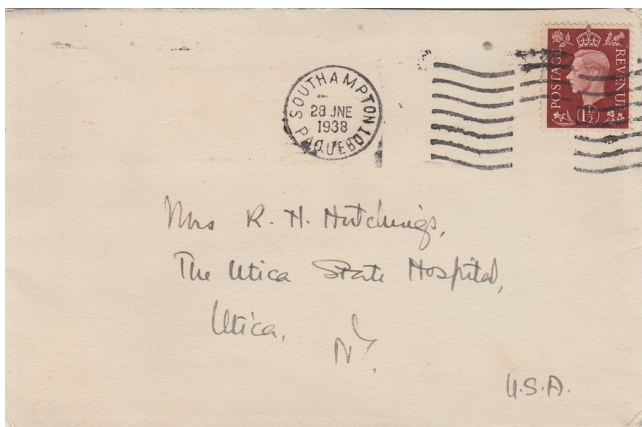 SOUTHAMPTON
28 JNE
1938
PAQUEBOT
POSTAGE REVENUE
1½
Mrs R. H. Hutchings,
The Utica State Hospital,
Utica,
N.Y.
U.S.A.